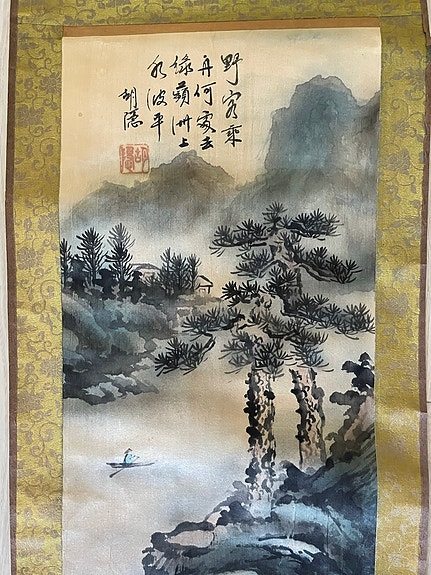 野客乘
舟何處去
綠蘋洲上
水波平
胡隱